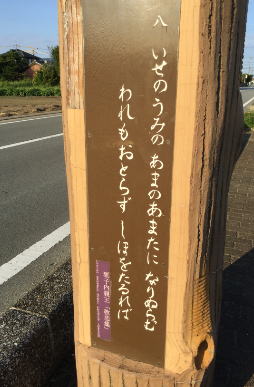 八 いせのうみの あまのあまたに なりぬらむ
われもおとらず しほをたるれば